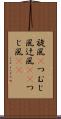 旋風つむじ
風辻風つ
じ風